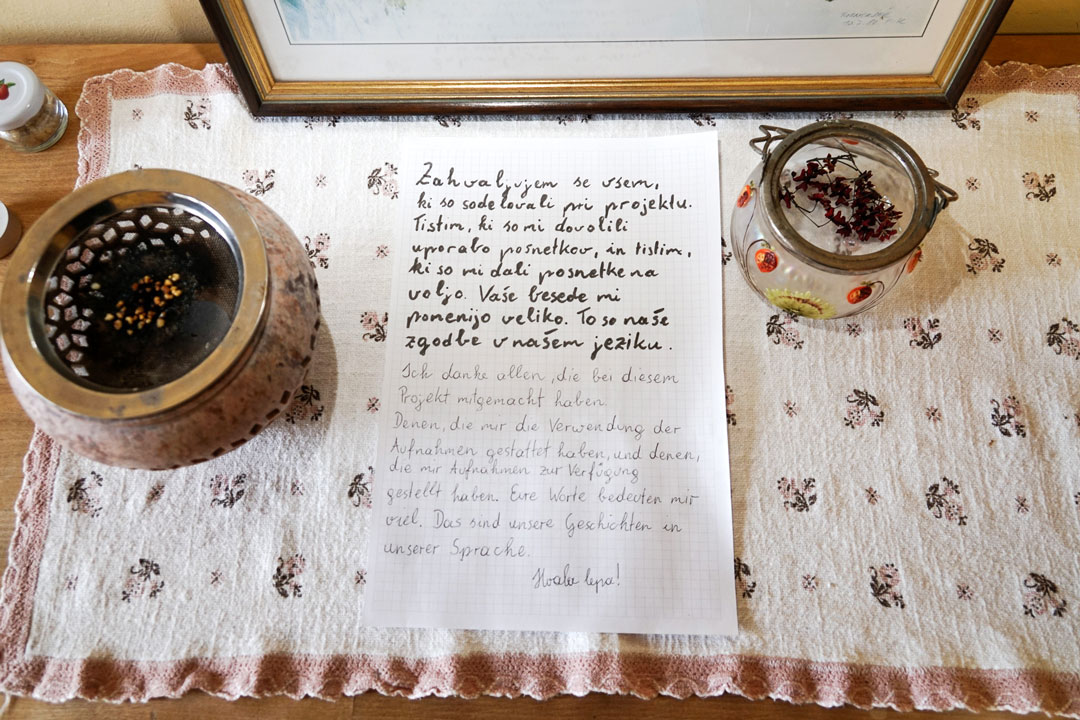 Zahvaljujem se vsem,
ki so sodelovali pri projektu.
Tistim, ki so mi dovolili
uporabo posnetkov, in tistim,
ki so mi dali posnetke na
voljo. Vaše besede mi
pomenijo veliko. To so naše
zgodbe v našem jeziku.
Ich danke allen, die bei diesem
Projekt mitgemacht haben.
Denen, die mir die Verwendung der
Aufnahmen gestattet haben, und denen,
die mir Aufnahmen zur Verfügung
gestellt haben. Eure Worte bedeuten mir
viel. Das sind unsere Geschichten in
unserer Sprache.
Hvala lepa!